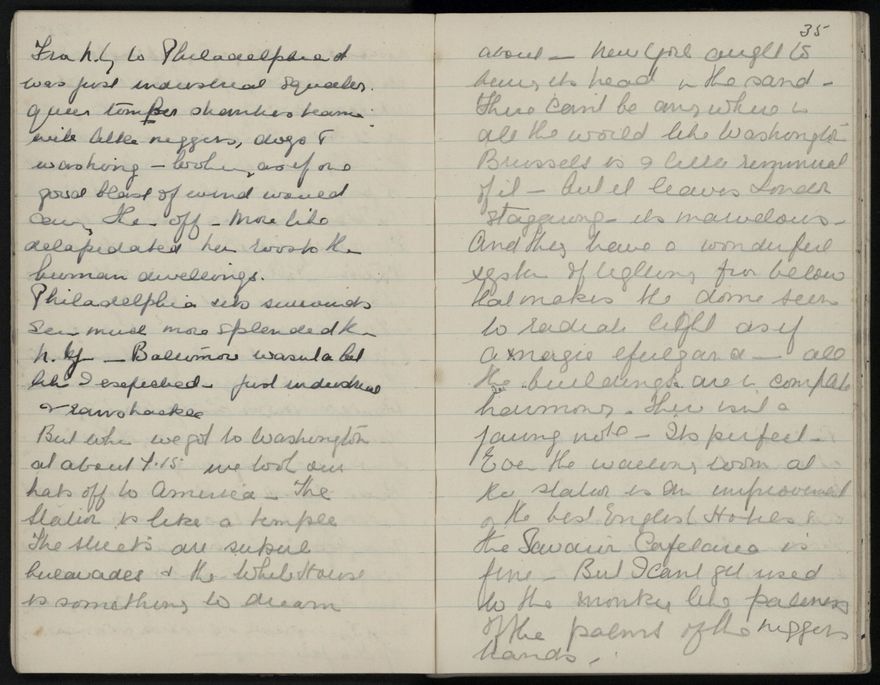 From N.Y to Philadelphia it
was just industrial squalor.
queer tumber shanties teaming
with little niggers, dogs &
washing – looking as if one
good blast of wind would
carry them off – More like
delapidated hen roosts than
human dwellings.
Philadelphia its surrounds
seem much more splended than
N.Y – Baltimore wasnt a bit
like I expected – just industrial
& ramshackle
But when we got to Washington
at about 7.15 we took our
hats off to America – The
Station is like a temple
The streets are superb
bulavades & the White House
is something to dream
35
about – New York ought to
bury its head in the sand –
There cant be anywhere in
all the world like Washington
Brussels is a little reminiscent
of it – but it leaves London
staggering – its marvelous –
And they have a wonderful
system of lighting from below
that makes the dome seem
to radiate light as if
a magic efulgance – all
the buildings are in complete
harmony – There isnt a
jarring note – Its perfect –
Even the waiting room at
the station is an improvement
on the best English Hotels &
the Savarin Cafeteria is
fine – But I cant get used
to the monkey like paleness
of the palms of the niggers
hands.